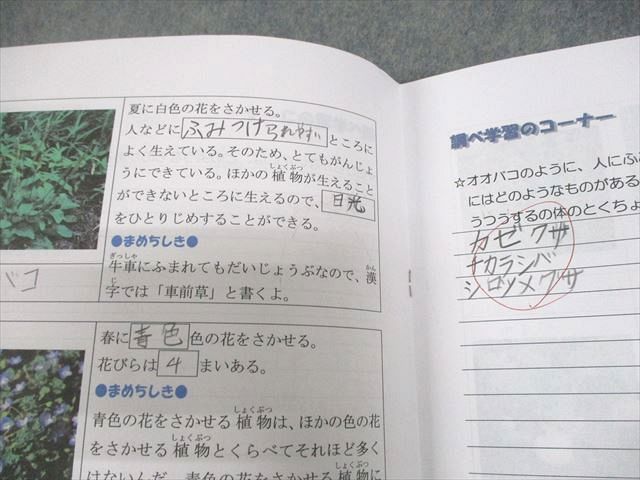 夏に白色の花をさかせる。
人などに ふみつけられやすい ところに
よく生えている。そのため、とてもがんじょ
うにできている。ほかの植物が生えること
しょくぶつ
ができないところに生えるので、 日光
をひとりじめすることができる。
●まめちしき●
牛車にふまれてもだいじょうぶなので、漢
ぎっしゃ
かん
字では「車前草」と書くよ。
じ
バコ
春に 青色 色の花をさかせる。
花びらは 4 まいある。
●まめちしき●
青色の花をさかせる植物は、ほかの色の花
しょくぶつ
をさかせる植物とくらべてそれほど多く
しょくぶつ
はないんだ。青色の花をさかせる植物に
しょくぶつ
調べ学習のコーナー
☆オオバコのように、人にふ
にはどのようなものがある
うつうするの体のとくちょ
カゼクサ
チカラシバ
シロツメクサ